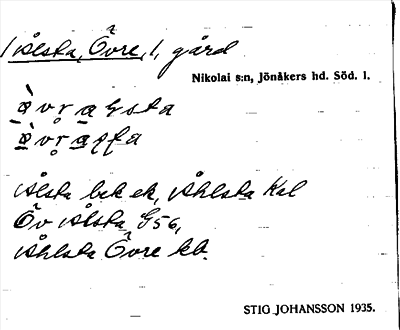 Ålsta, Övre, 1, gård
Nikolai s:n, Jönåkers hd. Söd. l.
Ålsta bek ek, Åhlsta Kal
Öv Ålsta, G56,
Åhlsta Övre kb.
STIG JOHANSSON 1935.